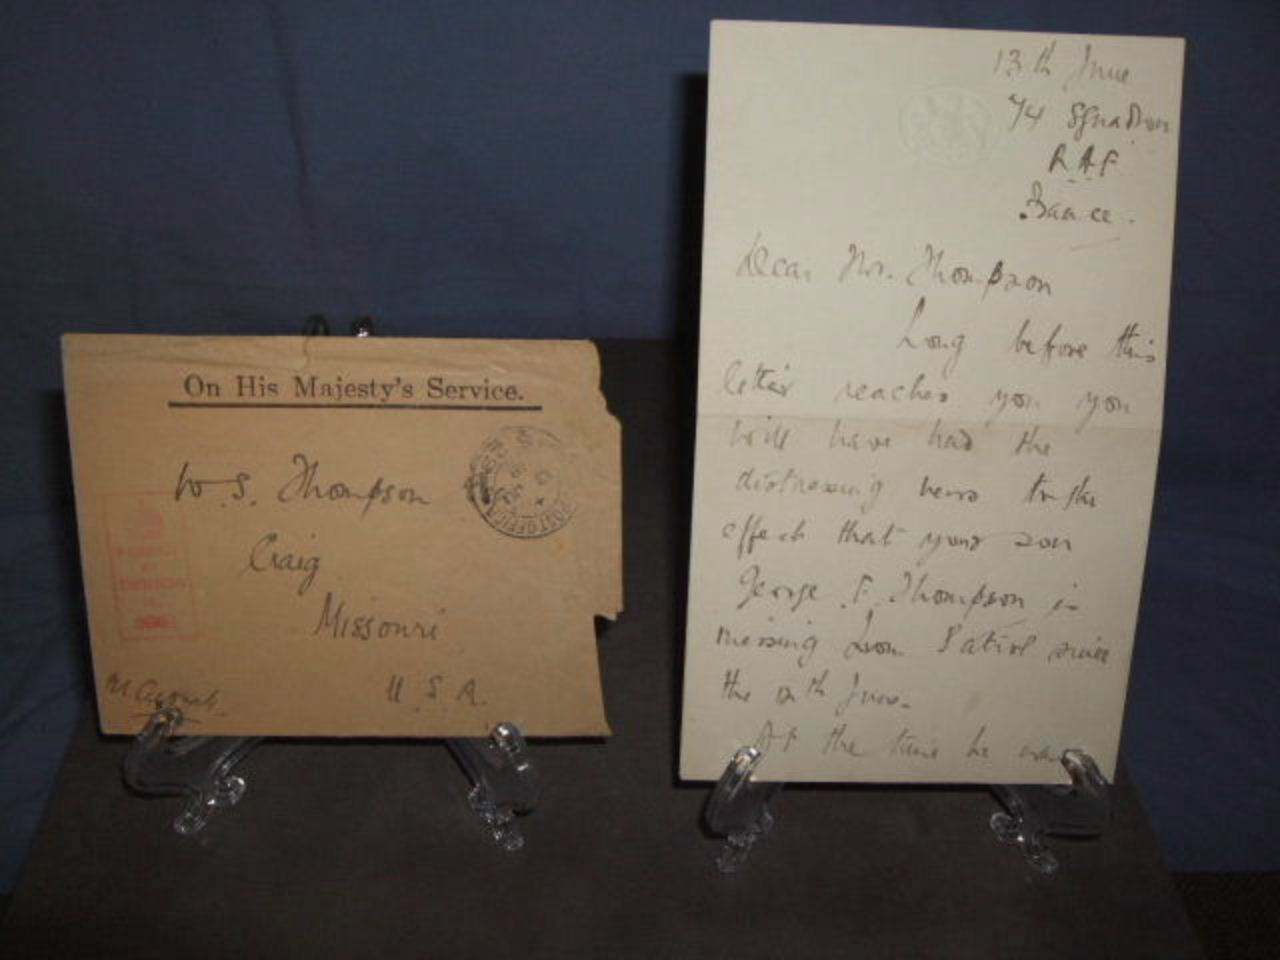 On His Majesty's Service.
W. S. Thompson
Craig
Missouri
U. S. A.
POST OFFICE
13th June
74 Squadron
R A F
France.
Dear Mr. Thompson
Long before this
letter reaches you you
will have had the
distressing news to the
effect that your son
George F. Thompson is
missing from Patrol since
the 12th June.
At the time he was